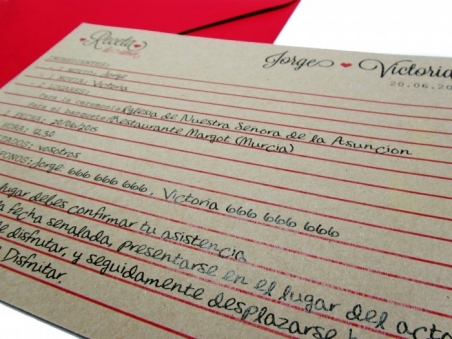 Receta
Jorge Victoria
20.06.20
INGREDIENTES:
1 NOVIO: Jorge
1 NOVIA: Victoria
Para la ceremonia: Iglesia de Nuestra Senora de la Asuncion
para el banquete: Restaurante Margot (Murcia)
FECHA: 20/06/2015
HORA: 12:30
INVITADOS: vosotros
TELEFONOS: Jorge 666 666 666 , Victoria 666 666 666
lugar debes confirmar tu asistencia
la fecha senalada, presentarse en el lugar del acto
de disfrutar, y seguidamente desplazarse
Disfrutar.